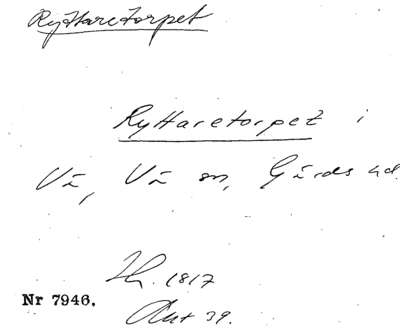 Ryttaretorpet
Ryttaretorpet i
Vä, Vä sn, Gärds hd.
Hfl. 1817
Nr 7946.
Ant 39.